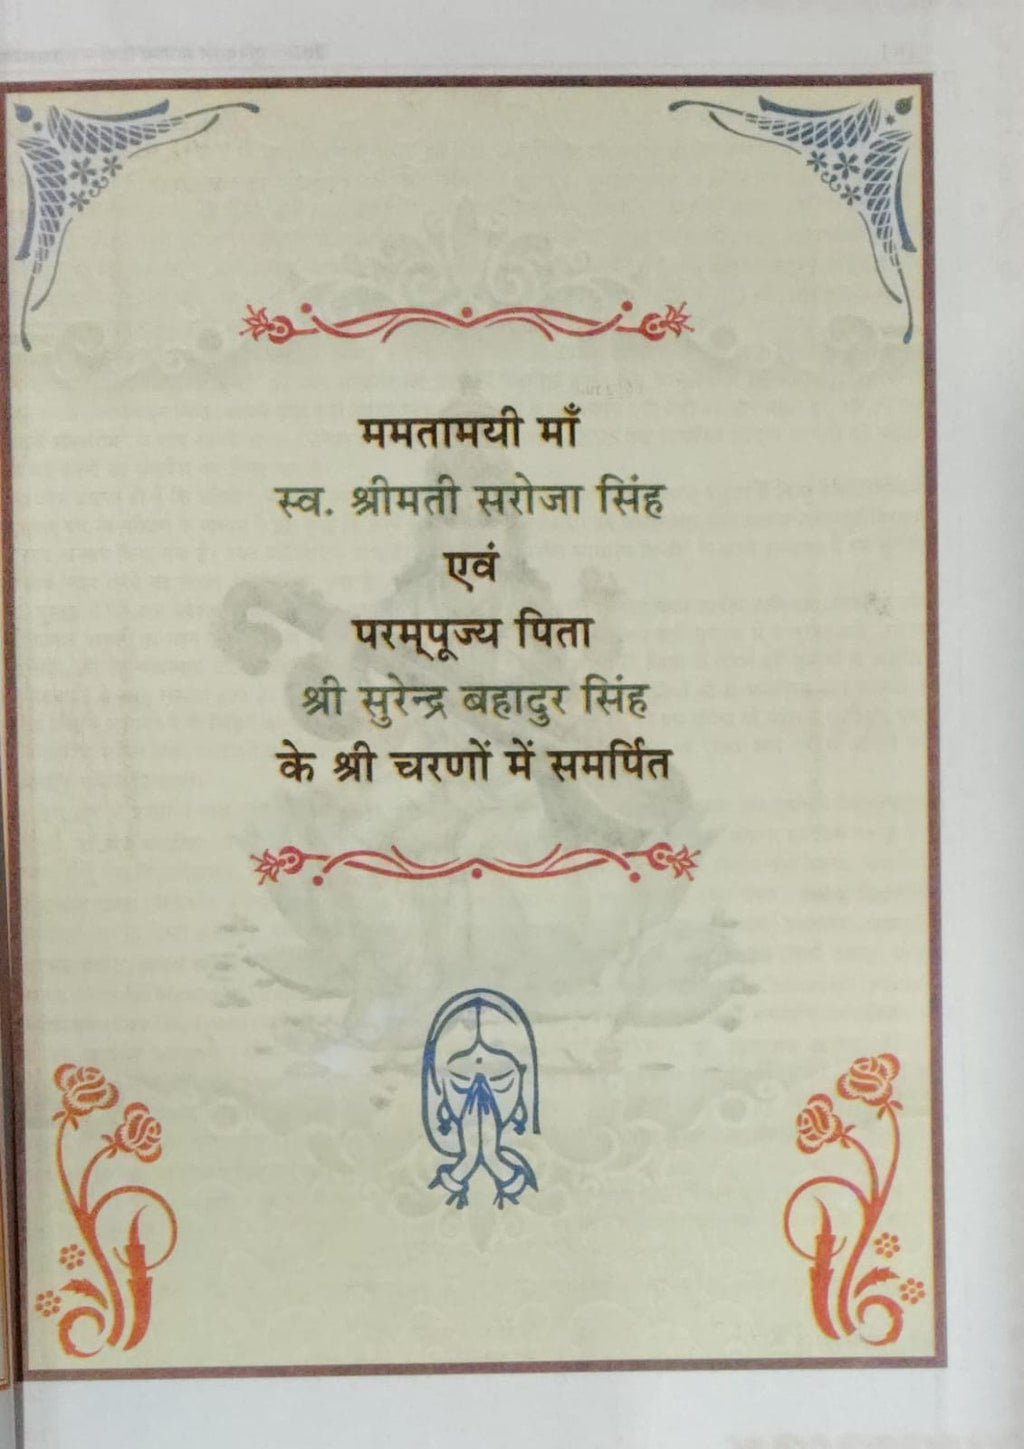 ममतामयी माँ
स्व. श्रीमती सरोजा सिंह
एवं
परम्‌पूज्य पिता
श्री सुरेन्द्र बहादुर सिंह
के श्री चरणों में समर्पित